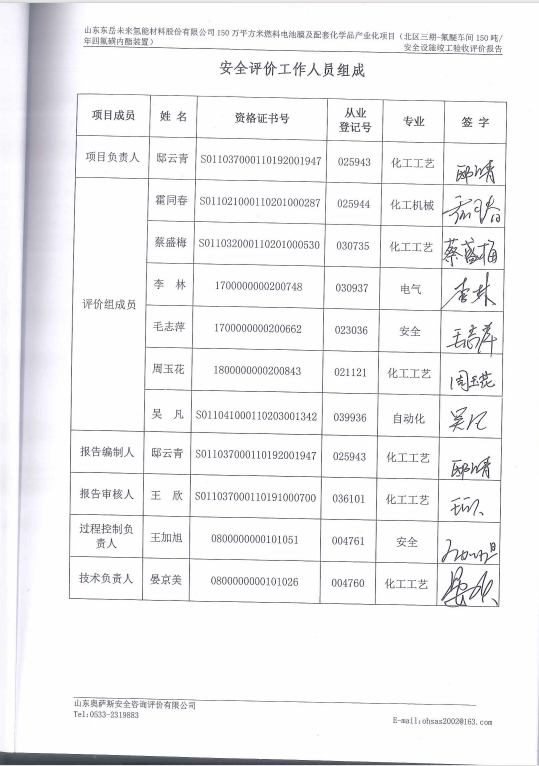 山东东岳未来氢能材料股份有限公司150万平方米燃料电池膜及配套化学品产业化项目（北区三期-氟醚车间150吨/
年四氟磺内酯装置） 安全设施竣工验收评价报告
安全评价工作人员组成
项目成员 姓 名 资格证书号 从业登记号 专业 签 字
项目负责人 邸云青 S011037000110192001947 025943 化工工艺 邸云青
评价组成员
霍同春 S011021000110201000287 025944 化工机械 霍同春
蔡盛梅 S011032000110201000530 030735 化工工艺 蔡盛梅
李 林 1700000000200748 030937 电气 李林
毛志萍 1700000000200662 023036 安全 毛志萍
周玉花 1800000000200843 021121 化工工艺 周玉花
吴 凡 S011041000110203001342 039936 自动化 吴凡
报告编制人 邸云青 S011037000110192001947 025943 化工工艺 邸云青
报告审核人 王 欣 S011037000110191000700 036101 化工工艺 王欣
过程控制负责人 王加旭 0800000000101051 004761 安全
技术负责人 晏京美 0800000000101026 004760 化工工艺
山东奥萨斯安全咨询评价有限公司
Tel:0533-2319883 E-mail:ohsas2002@163.com